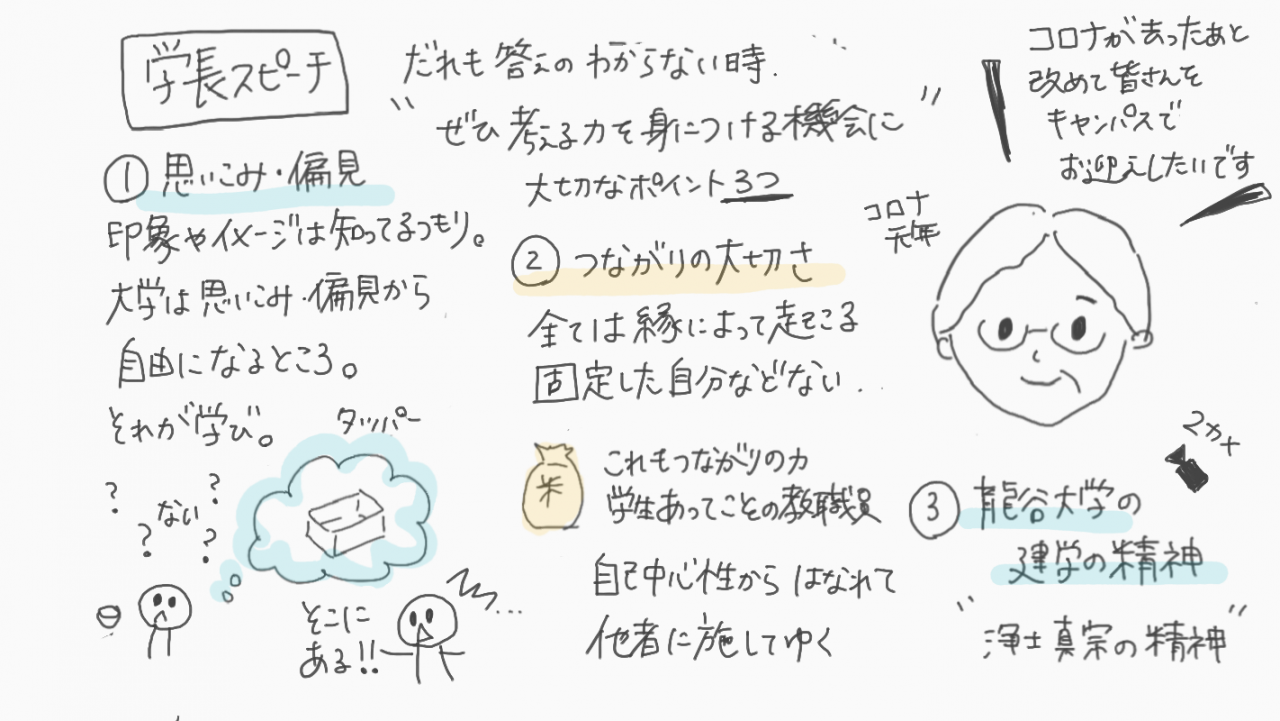 学長スピーチ
だれも答えのわからない時.
"ぜひ考える力を身につける機会に"
大切なポイント3つ
① 思いこみ・偏見
印象やイメージは知ってるつもり。
大学は思いこみ・偏見から
自由になるところ。
それが学び。
タッパー
? ない ?
? ?
そこに
ある!!
② つながりの大切さ
全ては縁によって起こる
固定した自分などない.
米
これもつながりの力
学生あってことの教職員
自己中心性から はなれて
他者に施してゆく
コロナがあったあと
改めて皆さんを
キャンパスで
お迎えしたいです
コロナ
元年
2カメ
③ 龍谷大学の
建学の精神
"浄土真宗の精神"